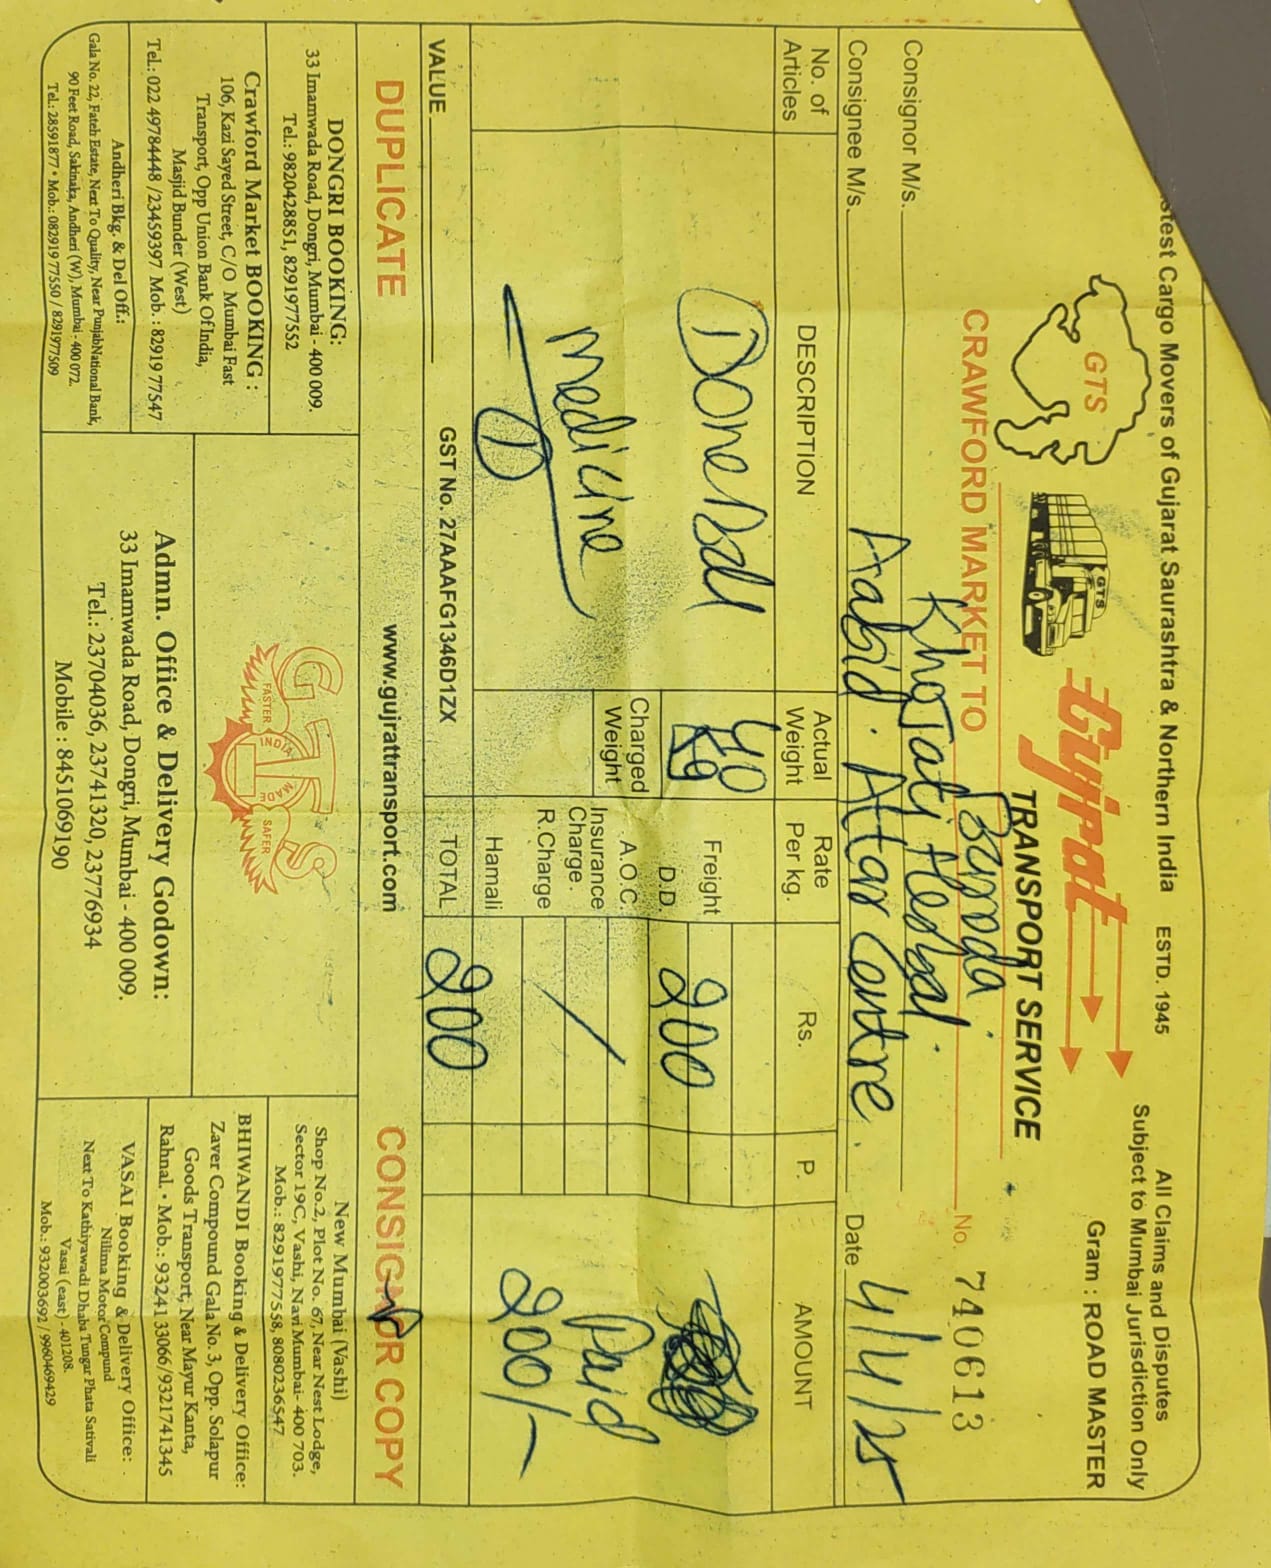 stest Cargo Movers of Gujarat Saurashtra & Northern India ESTD. 1945
All Claims and Disputes
Subject to Mumbai Jurisdiction Only
GTS
GTS
Gujrat
TRANSPORT SERVICE
Gram : ROAD MASTER
CRAWFORD MARKET TO Baroda
No. 740613
Consignor M/s. Khojati Herbal.
Consignee M/s. Aabid. Attar Centre.
Date 4/4/25
No. of Articles
DESCRIPTION
Actual Weight
Rate Per kg.
Rs.
P.
AMOUNT
40 Kg
Charged Weight
Freight
D.D 200
A.O.C
Insurance Charge.
R.Charge
Hamali
TOTAL 200
medicine
Paid
200/-
VALUE
GST No. 27AAAFG1346D1ZX
DUPLICATE
www.gujrattransport.com
CONSIGNOR COPY
DONGRI BOOKING:
33 Imamwada Road, Dongri, Mumbai - 400 009.
Tel.: 9820428851, 8291977552
Crawford Market BOOKING :
106, Kazi Sayed Street, C/O Mumbai Fast
Transport, Opp Union Bank Of India,
Masjid Bunder (West)
Tel.: 022 49784448 /23459397 Mob. : 82919 77547
Andheri Bkg. & Del Off.:
Gala No. 22, Fateh Estate, Next To Quality, Near PunjabNational Bank,
90 Feet Road, Sakinaka, Andheri (W) Mumbai - 400 072.
Tel.: 28591877 • Mob.: 08291977550 / 8291977509
GTS
FASTER
INDIA
MADE
SAFER
Admn. Office & Delivery Godown:
33 Imamwada Road, Dongri, Mumbai - 400 009.
Tel.: 23704036, 23741320, 23776934
Mobile : 8451069190
New Mumbai (Vashi)
Shop No.2, Plot No. 67, Near Nest Lodge,
Sector 19C, Vashi, Navi Mumbai- 400 703.
Mob.: 8291977558, 8080236547
BHIWANDI Booking & Delivery Office:
Zaver Compound Gala No. 3, Opp. Solapur
Goods Transport, Near Mayur Kanta,
Rahnal. • Mob.: 93241 33066/9321741345
VASAI Booking & Delivery Office:
Nilima Motor Compund
Next To Kathiyawadi Dhaba Tungar Phata Sativali
Vasai (east) - 401208.
Mob.: 9320003692 / 9960469429